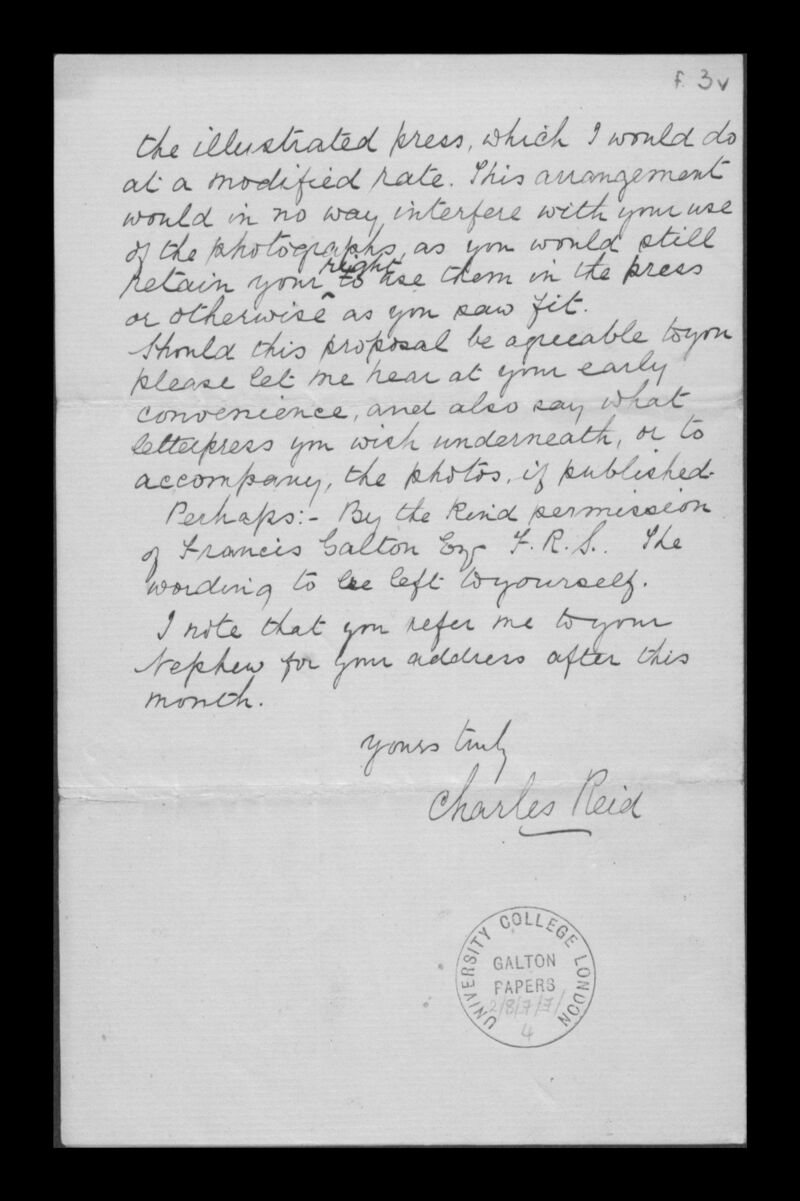 f. 3v
the illustrated press, which I would do
at a modified rate. This arrangement
would in no way interfere with your use
of the photographs, as you would still
right
retain your to use them in the press
or otherwise as you saw fit.
Should this proposal be agreeable to you
please let me hear at your early
convenience, and also say what
letterpress you wish underneath, or to
accompany, the photos, if published.
Perhaps:- By the kind permission
of Francis Galton Esq F.R.S. The
wording to be left to yourself.
I note that you refer me to your
Nephew for your address after this
month.
yours truly
Charles Reid
UNIVERSITY COLLEGE LONDON
GALTON
PAPERS
2/8/7/7/
4